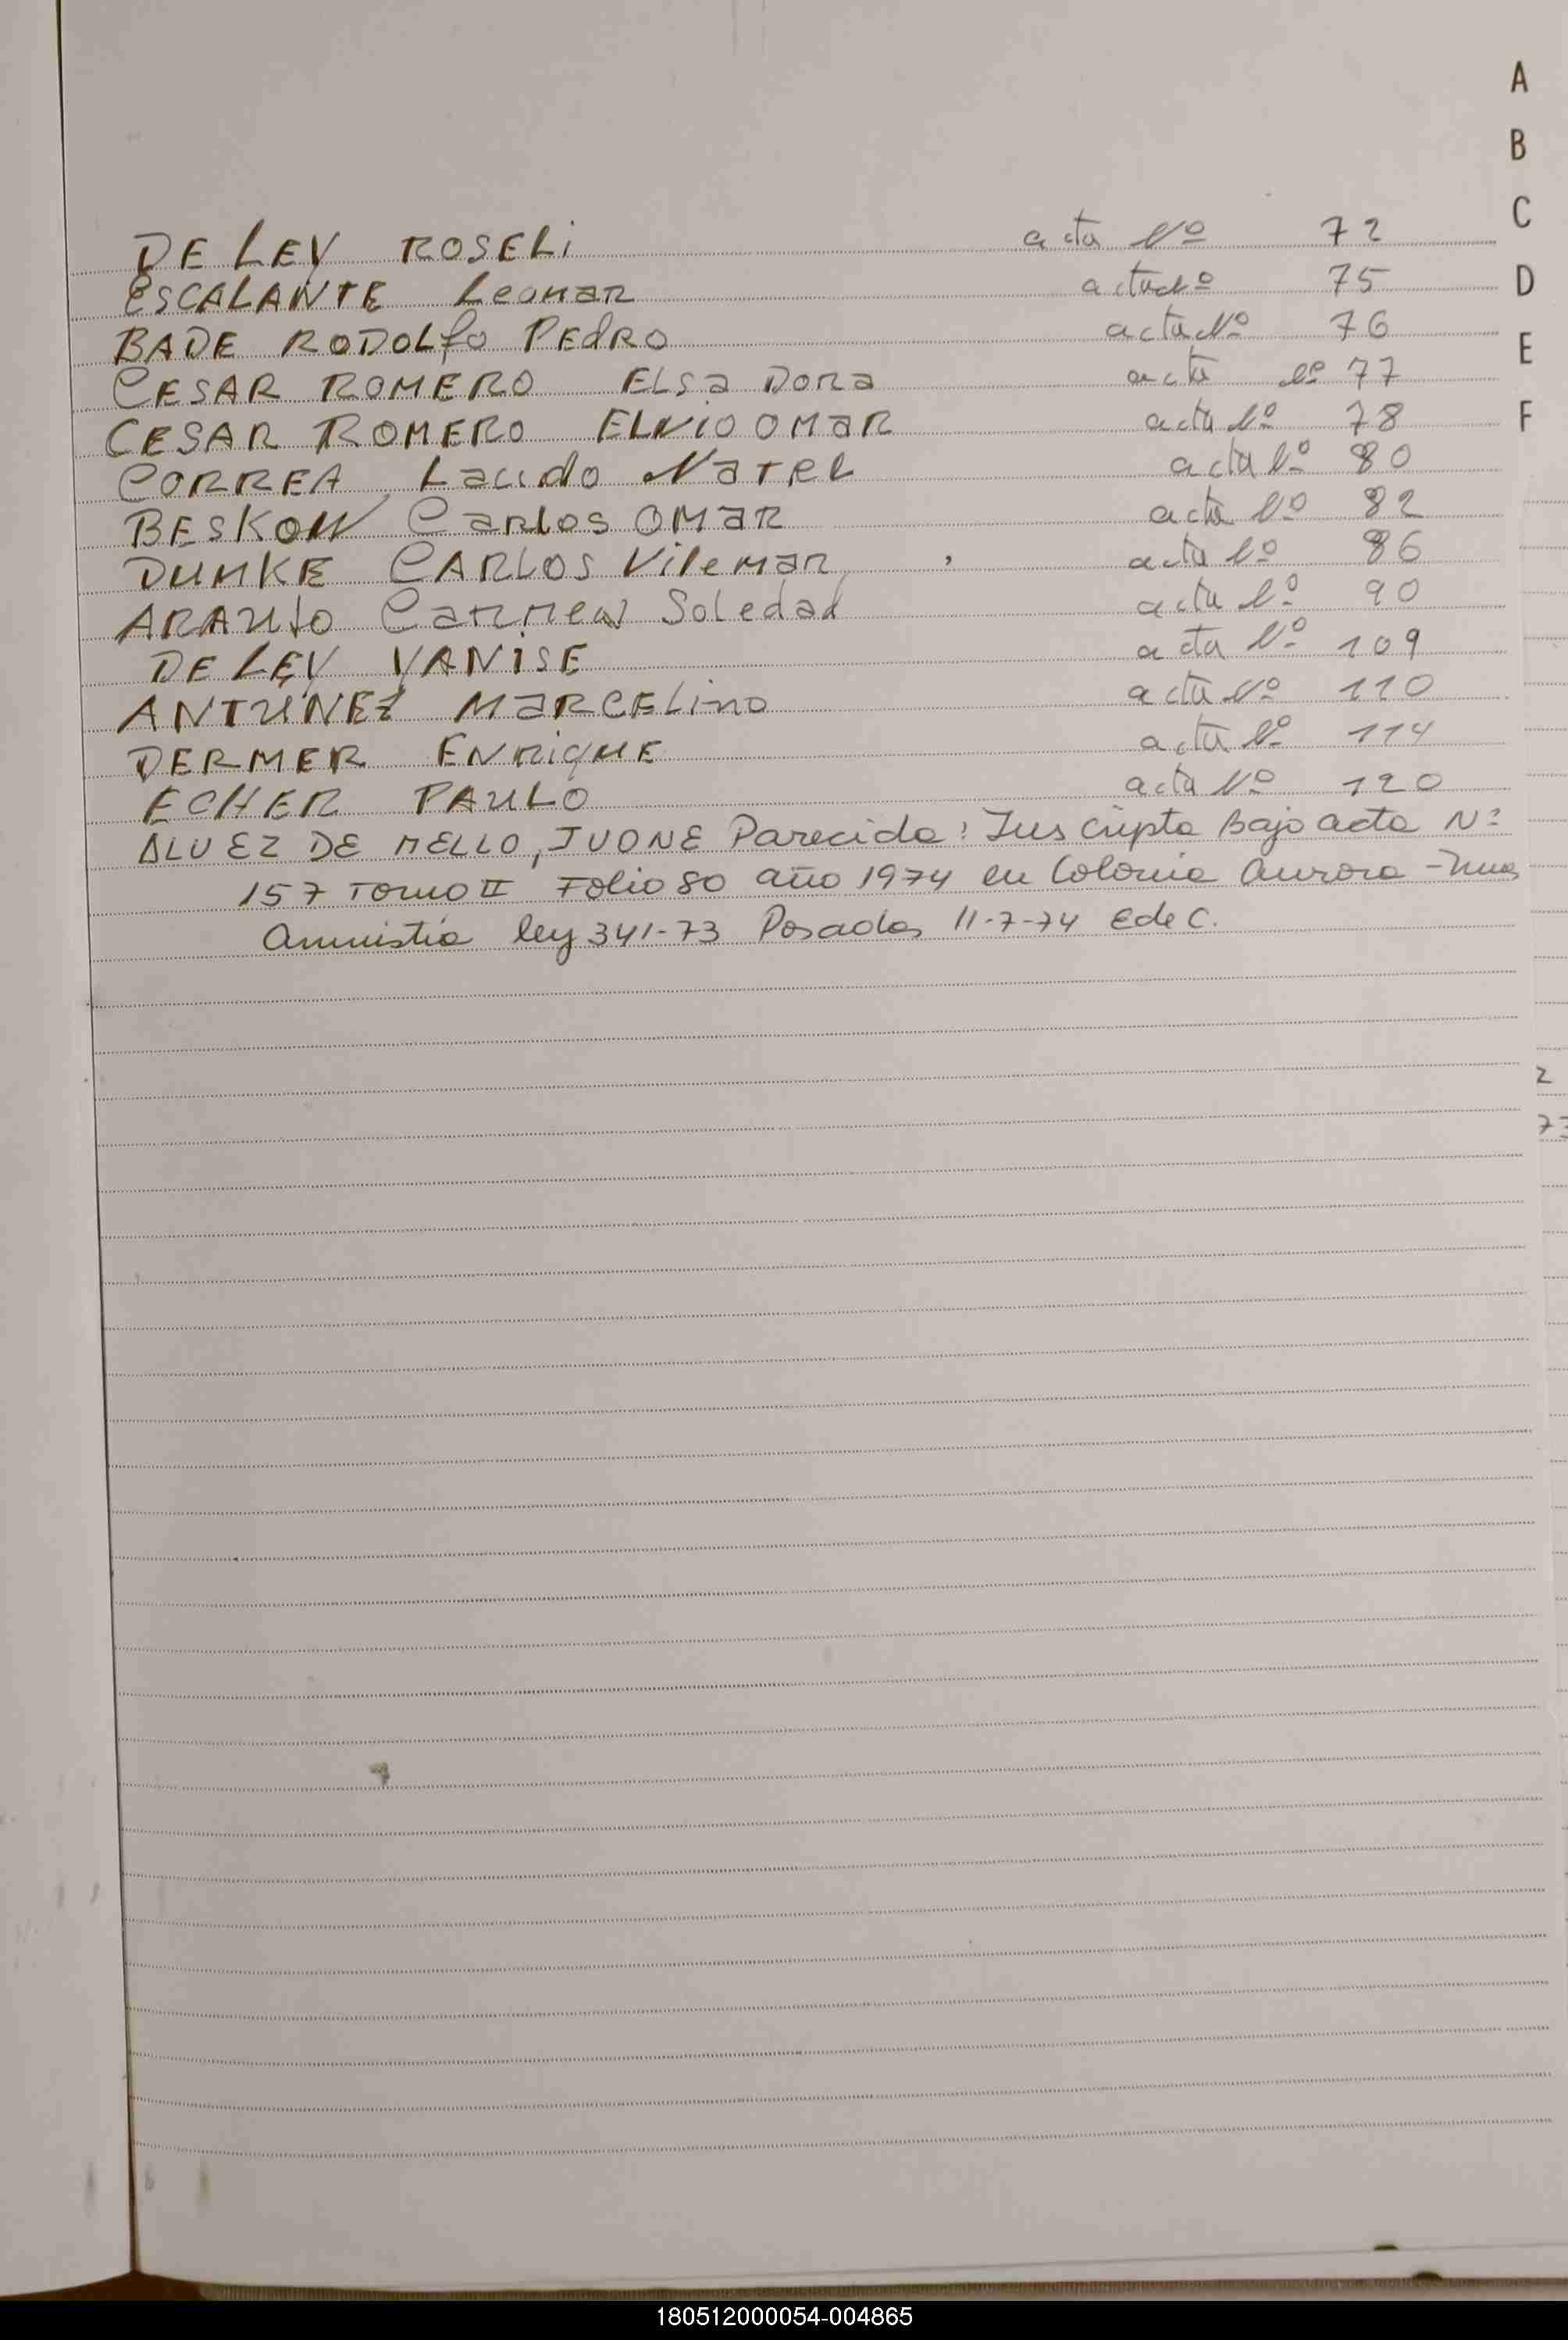 A
B
C
D
E
F
DE LEY ROSELi acta Nº 72
ESCALANTE Leomar acta Nº 75
BADE RODOLfo PEdRO acta Nº 76
CESAR ROMERO ELSa DORa acta Nº 77
CESAR ROMERO ELViO OMaR acta Nº 78
CORREA Lacido NaTEL acta Nº 80
BESKOW Carlos OMaR acta Nº 82
DUMKE CARLOS VileMar acta Nº 86
ARAUJO Carmen Soledad acta Nº 90
DE LEY VANiSE acta Nº 109
ANTUNEZ MaRCELino acta Nº 110
DERMER ENRiqUE acta Nº 114
ECHER PAULO acta Nº 120
ALVEZ DE MELLO, IVONE Parecida: Inscripta Bajo acta Nº
157 Tomo II Folio 80 año 1974 en Colonia Aurora -
Amnistia ley 341-73 Posadas 11-7-74 E de C.
2
73
180512000054-004865